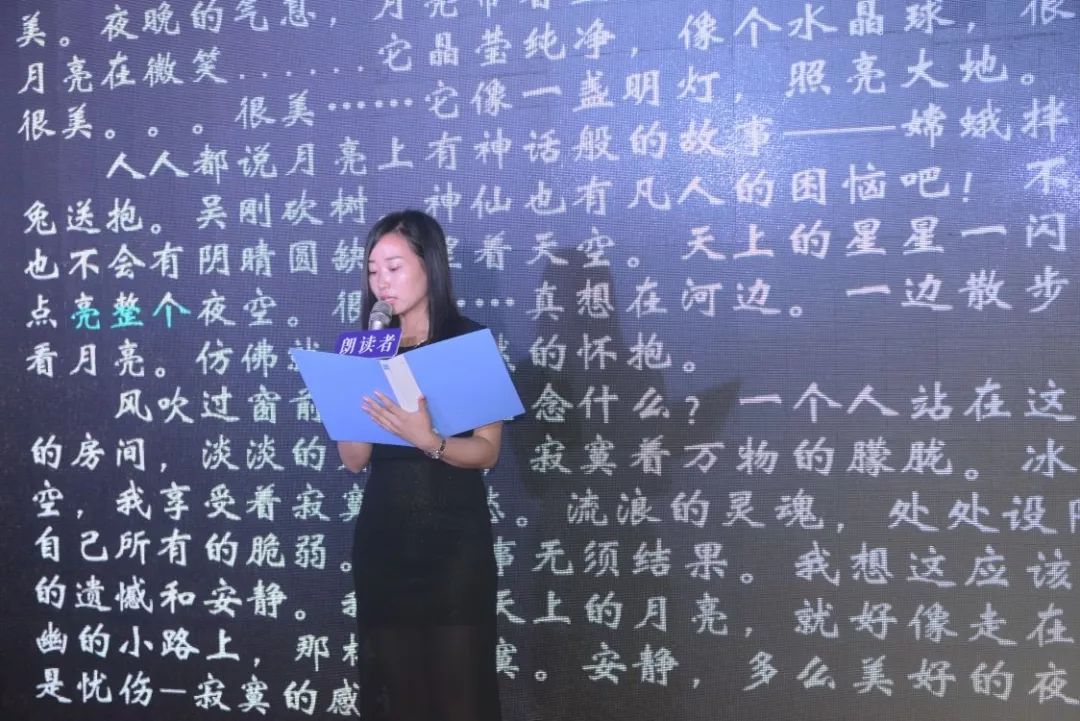 美。夜晚的气息，月亮带着
月亮在微笑......它晶莹纯净，像个水晶球，很
很美。。。很美……它像一盏明灯，照亮大地。
人人都说月亮上有神话般的故事——嫦娥拌
兔送抱。吴刚砍树 神仙也有凡人的困恼吧！不
也不会有阴晴圆缺 望着天空。天上的星星一闪
点亮整个夜空。很 ……真想在河边。一边散步
看月亮。仿佛 的怀抱。
风吹过窗前 念什么？一个人站在这
的房间，淡淡的 寂寞着万物的朦胧。冰
空，我享受着寂寞 愁。流浪的灵魂，处处设防
自己所有的脆弱。 事无须结果。我想这应该
的遗憾和安静。我 天上的月亮，就好像走在
幽的小路上，那种 寞。安静，多么美好的夜
是忧伤—寂寞的感
朗读者